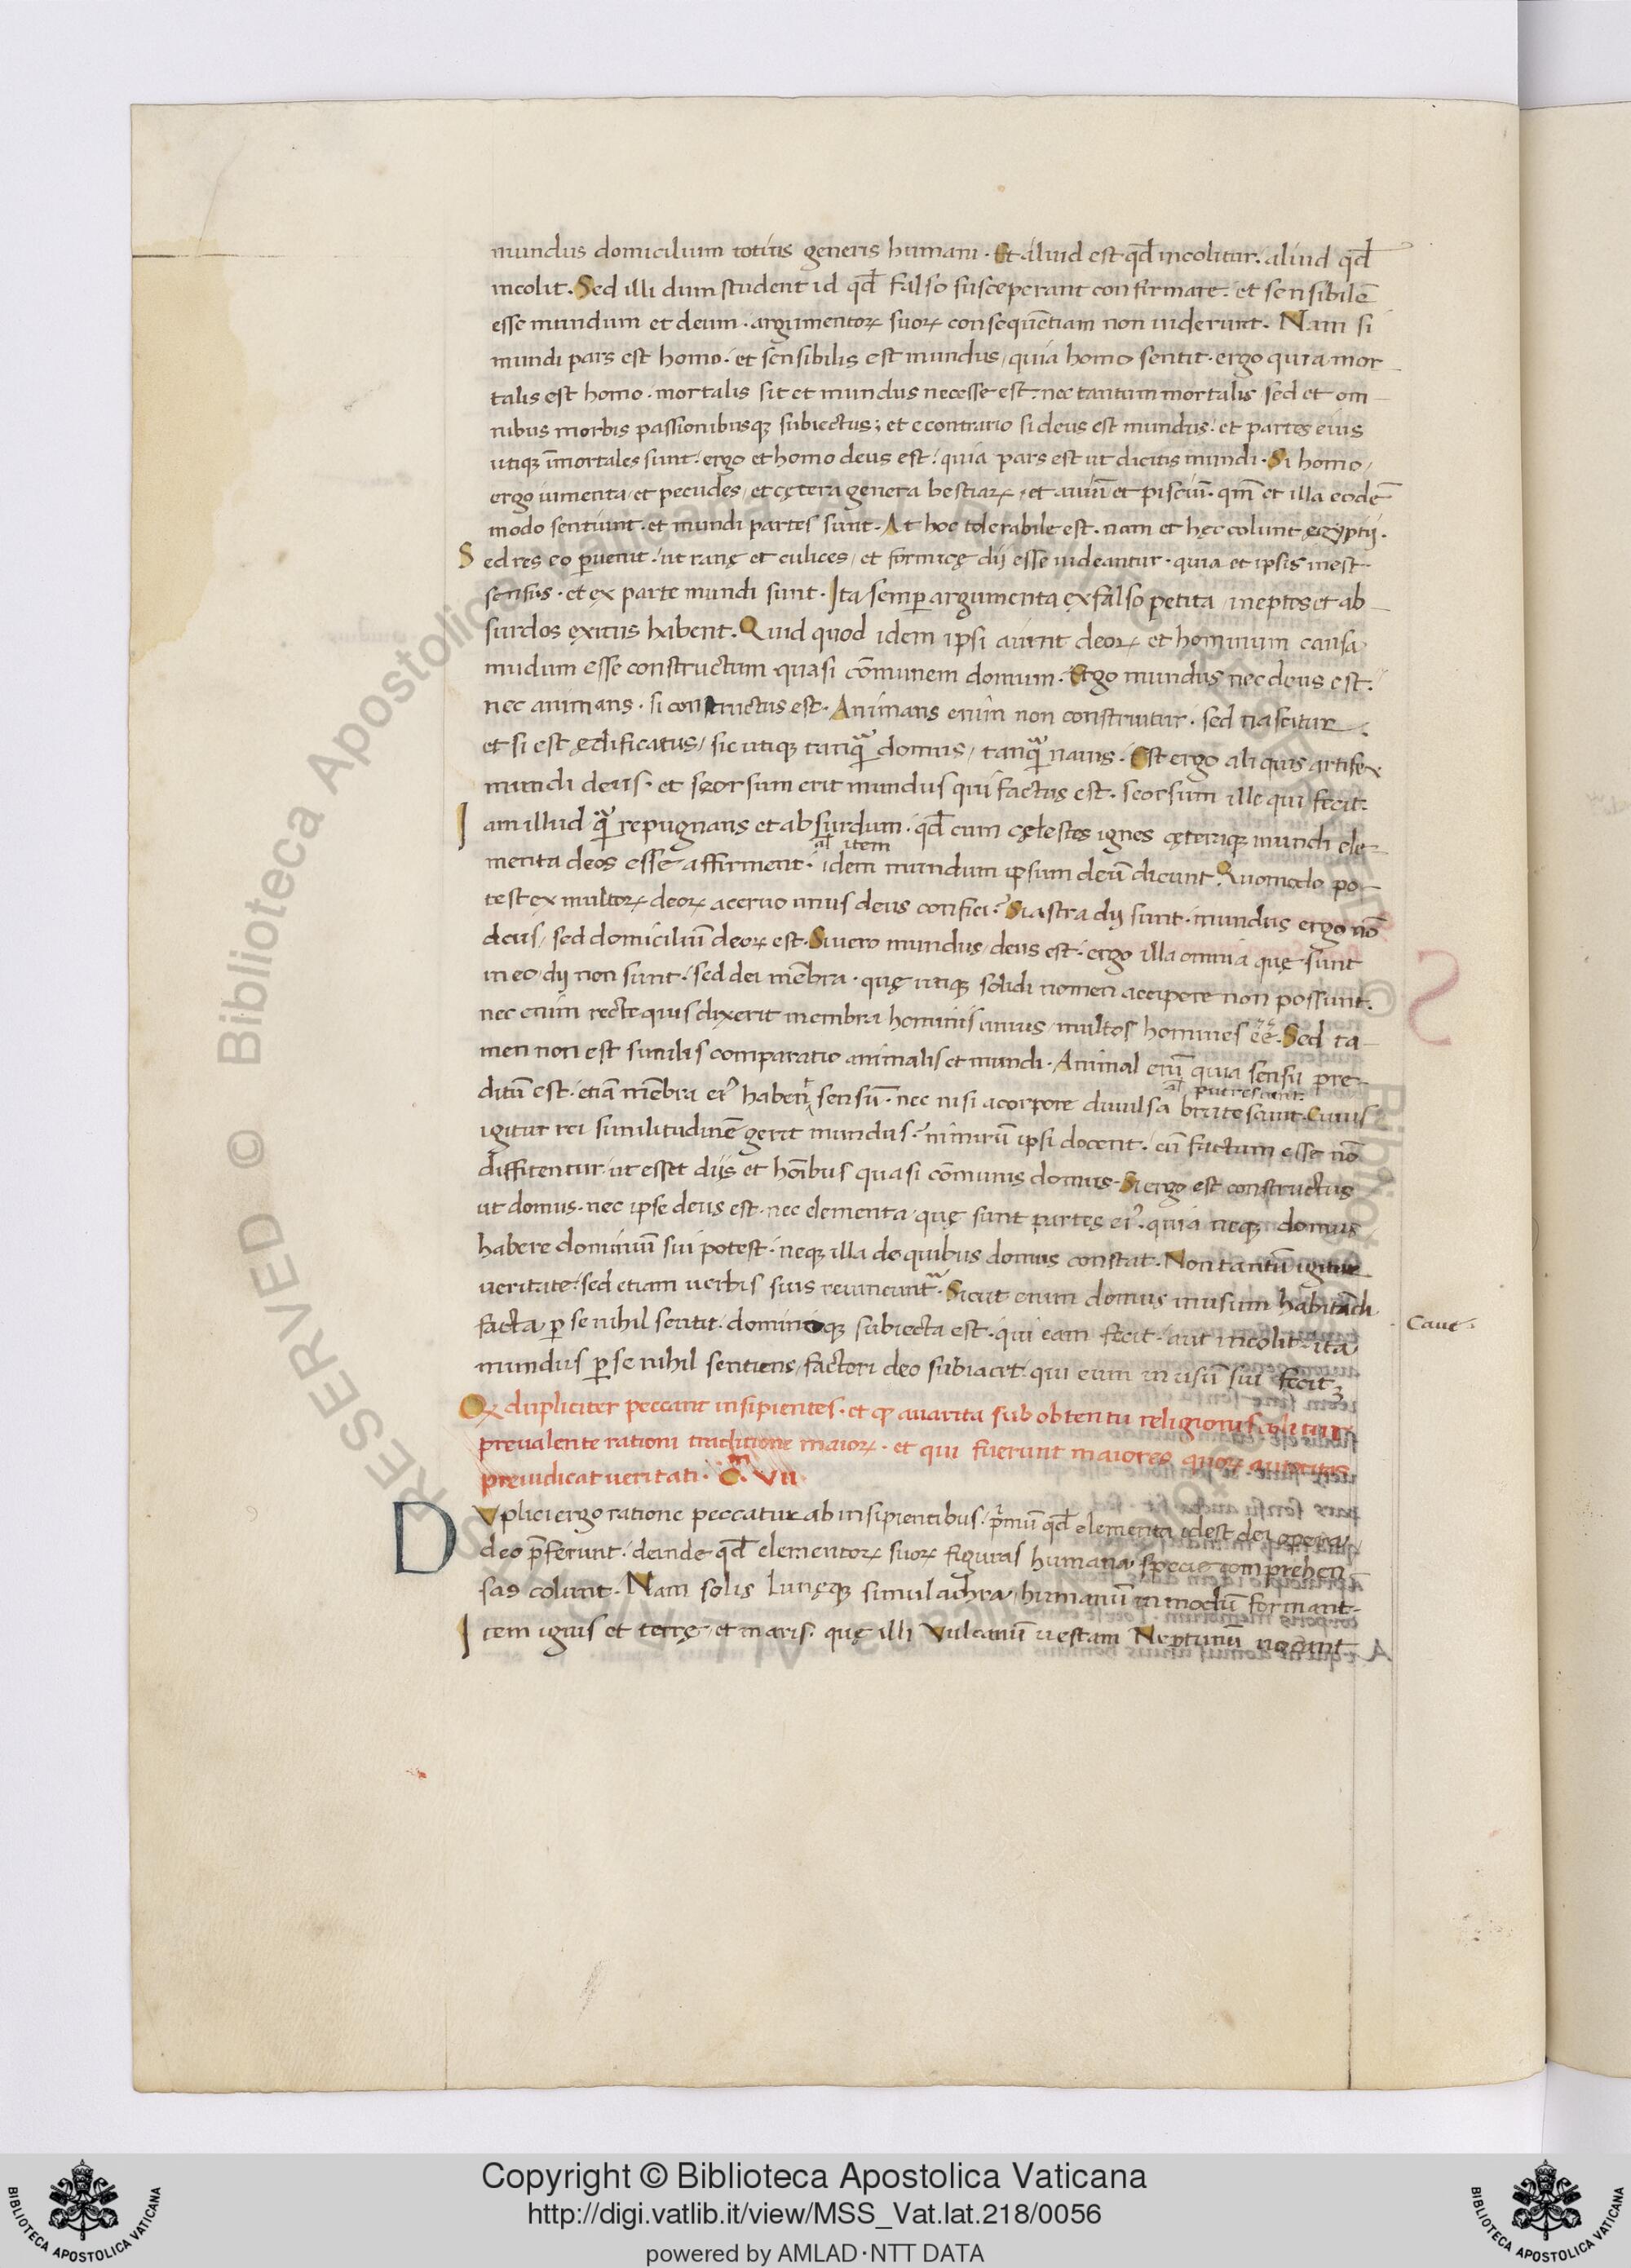 mundus domicilium totius generis humani. Et aliud est qd̄ incolitur. aliud qd̄
incolit. Sed illi dum student id qd̄ falso susceperant confirmare. et sensibilē
esse mundum et deum. argumentoꝝ suoꝝ consequētiam non uiderunt. Nam si
mundi pars est homo. et sensibilis est mundus, quia homo sentit. ergo quia mor
talis est homo. mortalis sit et mundus necesse est. nec tantum mortalis sed et om
nibus morbis passionibusqꝫ subiectus; et e contrario si deus est mundus. et partes eius
utiqꝫ īmortales sunt. ergo et homo deus est. quia pars est ut dicitis mundi. Si homo,
ergo iumenta, et pecudes, et cętera genera bestiaꝝ, et auiū et pisciū. qm̄ et illa eodē
modo sentiunt. et mundi partes sunt. At hoc tolerabile est. nam et hęc colunt ęgyptij.
Sed res eo ꝑuenit. ut ranę et culices, et formicę dij esse uideantur. quia et ipsis inest
sensus. et ex parte mundi sunt. Ita semꝑ argumenta ex falso petita, ineptos et ab
surdos exitus habent. Quid quod idem ipsi aiunt deoꝝ et hominum causa
mudum esse constructum quasi cōmunem domum. Ergo mundus nec deus est.
nec animans. si constructus est. Animans enim non construitur. sed nascitur
et si est ędificatus, sic utiqꝫ tanqꝫ domus, tanqꝫ nauis. Est ergo aliquis artifex
mundi deus. et seorsum erit mundus qui factus est. seorsum ille qui fecit.
Iam illud qꝫ repugnans et absurdum. qd̄ cum cęlestes ignes cęterisqꝫ mundi ele
al̄ item
menta deos esse affirment. idem mundum ipsum deū dicunt. Quomodo po
test ex multoꝝ deoꝝ aceruo unus deus confici? Si astra dij sunt. mundus ergo nō
deus, sed domiciliū deoꝝ est. Si uero mundus, deus est. ergo illa omnia quę sunt
in eo, dij non sunt. sed dei mēbra. quę utiqꝫ solidi nomen accipere non possunt.
nec enim recte quis dixerit membra hominis unius, multos homines eē. Sed ta
men non est similis comparatio animalis et mundi. Animal enī quia sensu pre
al̄ putrescunt
ditū est. etiā mēbra eiꝰ habent sensū. nec nisi a corpore diuulsa brutescunt. Cuius
igitur rei similitudinē gerit mundus? nimirū ipsi docent. cū factum esse nō
diffitentur. ut esset diis et hoībus quasi cōmunis domus. Si ergo est constructus
ut domus. nec ipse deus est. nec elementa quę sunt partes eiꝰ. quia neqꝫ domus
habere dominiū sui potest. neqꝫ illa de quibus domus constat. Non tantū igitur
ueritate. sed etiam uerbis suis reuincunt̄. Sicut enim domus in usum habitādi
facta, ꝑ se nihil sentit. dominoqꝫ subiecta est. qui eam fecit. aut incolit. ita
Caue.
mundus ꝑ se nihil sentiens, factori deo subiacet. qui eum in usū sui fecit
Qꝫ dupliciter peccant insipientes. et ꝙ auarita sub obtentu religionis colitur
preualente rationi traditione maioꝝ. et qui fuerunt maiores quoꝝ autoritas
preiudicat ueritati. C. VII
DVplici ergo ratione peccatur ab insipientibus. p̄mū qd̄ elementa idest dei opera
deo p̄ferunt. deinde qd̄ elementoꝝ suoꝝ figuras humana specie comprehen
sas colunt. Nam solis Lunęqꝫ simulachra, humanū in modū formant.
Item ignis et terrę et maris. quę illi Vulcanū uestam Neptunū uocant.
Copyright © Biblioteca Apostolica Vaticana
http://digi.vatlib.it/view/MSS_Vat.lat.218/0056
powered by AMLAD·NTT DATA